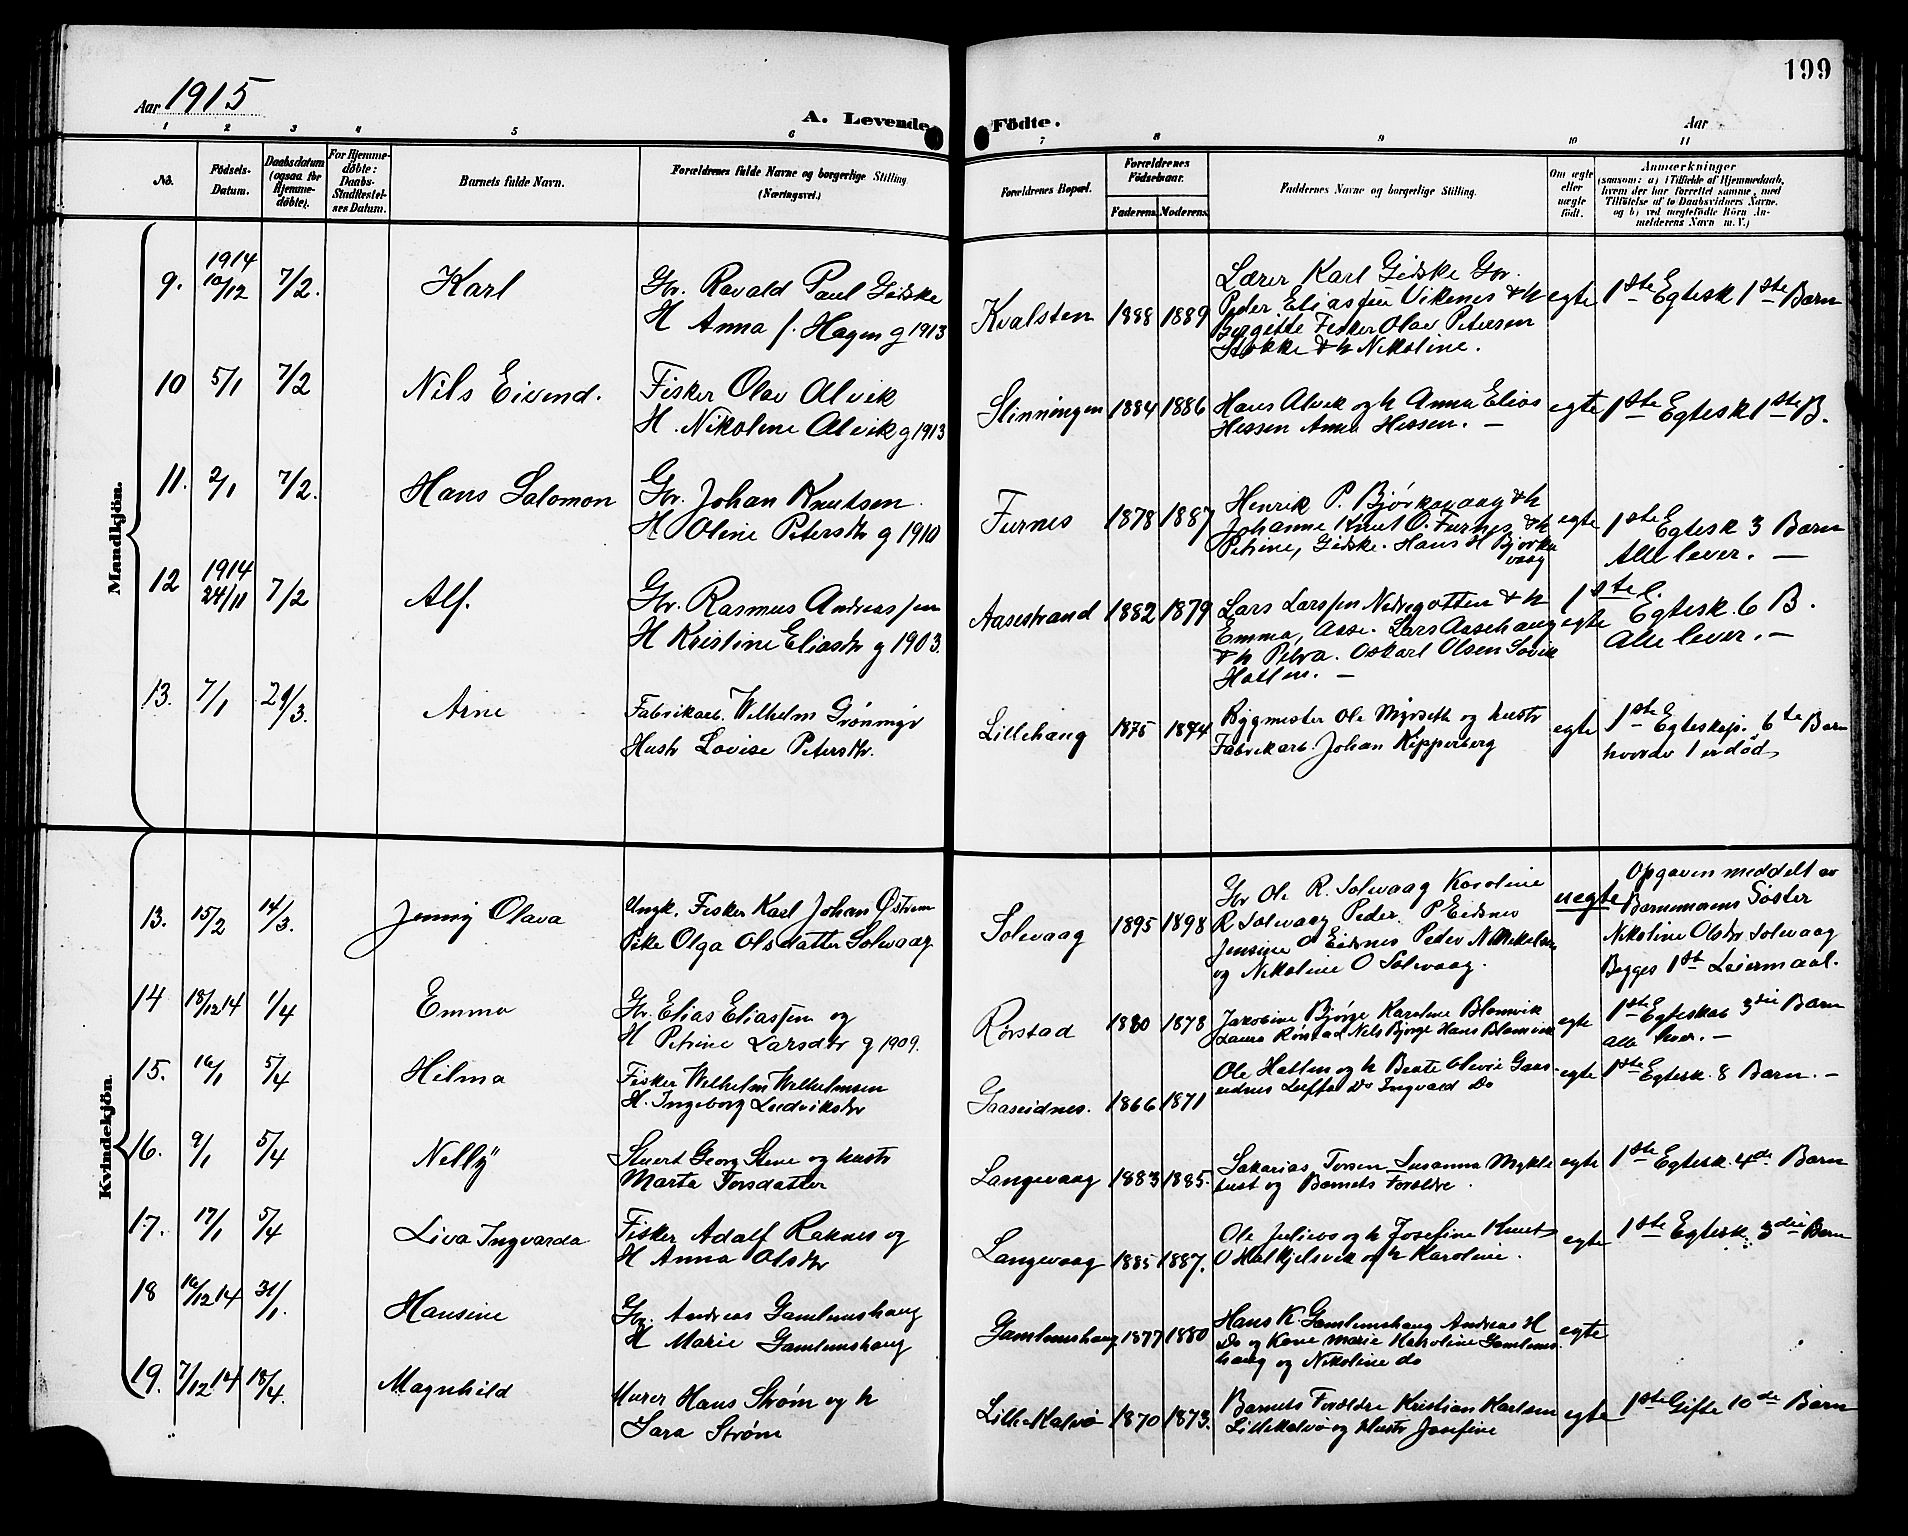 199
Aar 1915
A. Levende Födte.
Aar
1 2 3 4 5 6 7 8 9 10 11
No.
Födsels-Datum.
Daabsdatum (ogsaa for Hjemme-döbte).
For Hjemme-döbte: Daabs-Stadfestel-ses Datum.
Barnets fulde Navn.
Forældrenes fulde Navne og borgerlige Stilling
(Næringsvei.)
Forældrenes Bopæl.
Forældrenes Födselsaar.
Faderens. Moderens.
Faddernes Navne og borgerlige Stilling.
Om ægte eller uægte födt.
Anmærkninger
(saasom: a) i Tilfælde af Hjemmedaab, hvem der har forrettet samme, med Tilföielse af to Daabsvidners Navne. og b) ved uægtefödte Börn An-melderens Navn m. V.)
Mandkjön.
9. 1914 10/12 7/2. Karl
Gbr. Ravald Paul Giske
H Anna f. Hagen g 1913
Kvalsten 1888 1889
Lærer Karl Giske Gbr.
Peder Eliassen Vikenes & h
Bergitte Fisker Olav Petersen
Stokke & h Nikoline.
egte 1ste Egtesk 1ste Barn
10 5/1 7/2 Nils Eivind.
Fisker Olav Alvik
H. Nikoline Alvik g 1913
Slinningen 1884 1886
Hans Alvik og h Anna Elias
Hessen Anna Hessen. —
egte 1ste Egtesk 1ste B.
11. 2/1 7/2. Hans Salomon
Gbr. Johan Knutsen
H Oline Petersdtr g 1910
Furnes 1878 1887
Henrik P. Bjørkavaag & h
Johanne Knut O. Furnes & h
Petrine, Giske. Hans H Bjørka
vaag
egte 1ste Egtesk 3 Barn
Alle lever. —
12 1914 24/11 7/2 Alf.
Gbr. Rasmus Andreassen
H Kristine Eliasdtr g 1903.
Aasestrand 1882 1879
Lars Larssen Nedregotten & h
Emma, Aase. Lars Aasehaug
& h Petra. Oskarl Olsen Sovik
Hatlen. —
egte 1ste Egtesk. 6 B.
Alle lever. —
13. 7/1 29/3. Arne
Fabrikarb. Wilhelm Grönmyr
Hustr Lovise Petersdtr.
Lillehaug 1875 1874
Bygmester Ole Myrseth og hustr
Fabrikarb. Johan Kipperberg
egte 1ste Egteskap. 6te Barn
hvorav 1 er død,
Kvindekjön.
13. 15/2 14/3. Jenny Olava
Ungk. Fisker Karl Johan Østrem
Pike Olga Olsdatter Solevaag.
Solevaag 1895 1898
Gbr Ole R. Solevaag Karoline
R Solevaag Peder P Eidsnes
Jensine O Eidsnes Peder N Mikelsen
og Nikoline O Solevaag.
uegte
Opgaven meddelt av
Barnemorens Søster
Nikoline Olsdtr Solevaag
Begges 1st Leiermaal.
14 18/12 14 1/4 Emma
Gbr. Elias Eliassen og
H Petrine Larsdtr g 1909.
Rørstad 1880 1878
Jakobine Bjørge Karoline Blomvik
Laura Rørstad Nils Bjørge Hans Blomvik
egte 1ste Egteskab 3die Barn
alle lever. —
15. 16/1 5/4 Hilma
Fisker Wilhelm Wilhelmsen
H. Ingeborg Ludviksdtr
Gaaseidnes. 1866 1871
Ole Hatlen og h Beate Olivie Gaas-
eidnes Do Ingvald Do
egte 1ste Egtesk. 8 Barn. —
16. 9/1 5/4 Nelly
Stuert Georg Stene og hustr
Marta Torsdatter
Langevaag 1883 1885.
Sakarias Torsen Susanna Mykle
bust og Barnets Foreldre.
egte 1ste Egtesk. 4de Barn
17. 17/1 5/4 Liva Ingvarda
Fisker Adolf Raknes og
H Anna Olsdtr
Langevaag 1885 1887.
Ole Julievs og h Josefine Knut
O Molkjelsvik og h Karoline.
egte 1ste Egtesk. 3die Barn
18 16/12 14 31/1. Hansine
Gbr. Andreas Gamlemshaug
H Marie Gamlemshaug
Gamlemshaug 1877 1880
Hans K. Gamlemshaug Andreas H
Do og Kone Marie Karoline Gamlems
haug og Nikoline do
egte
19. 7/12 14 18/4. Magnhild
Murer Hans Strøm og h
Sara Strøm
Lille-Kalvø 1870 1873.
Barnets Foreldre Kristian Karlsen
Lillekalvø og Hustr Josefine
egte 1ste Gifte 10de Barn